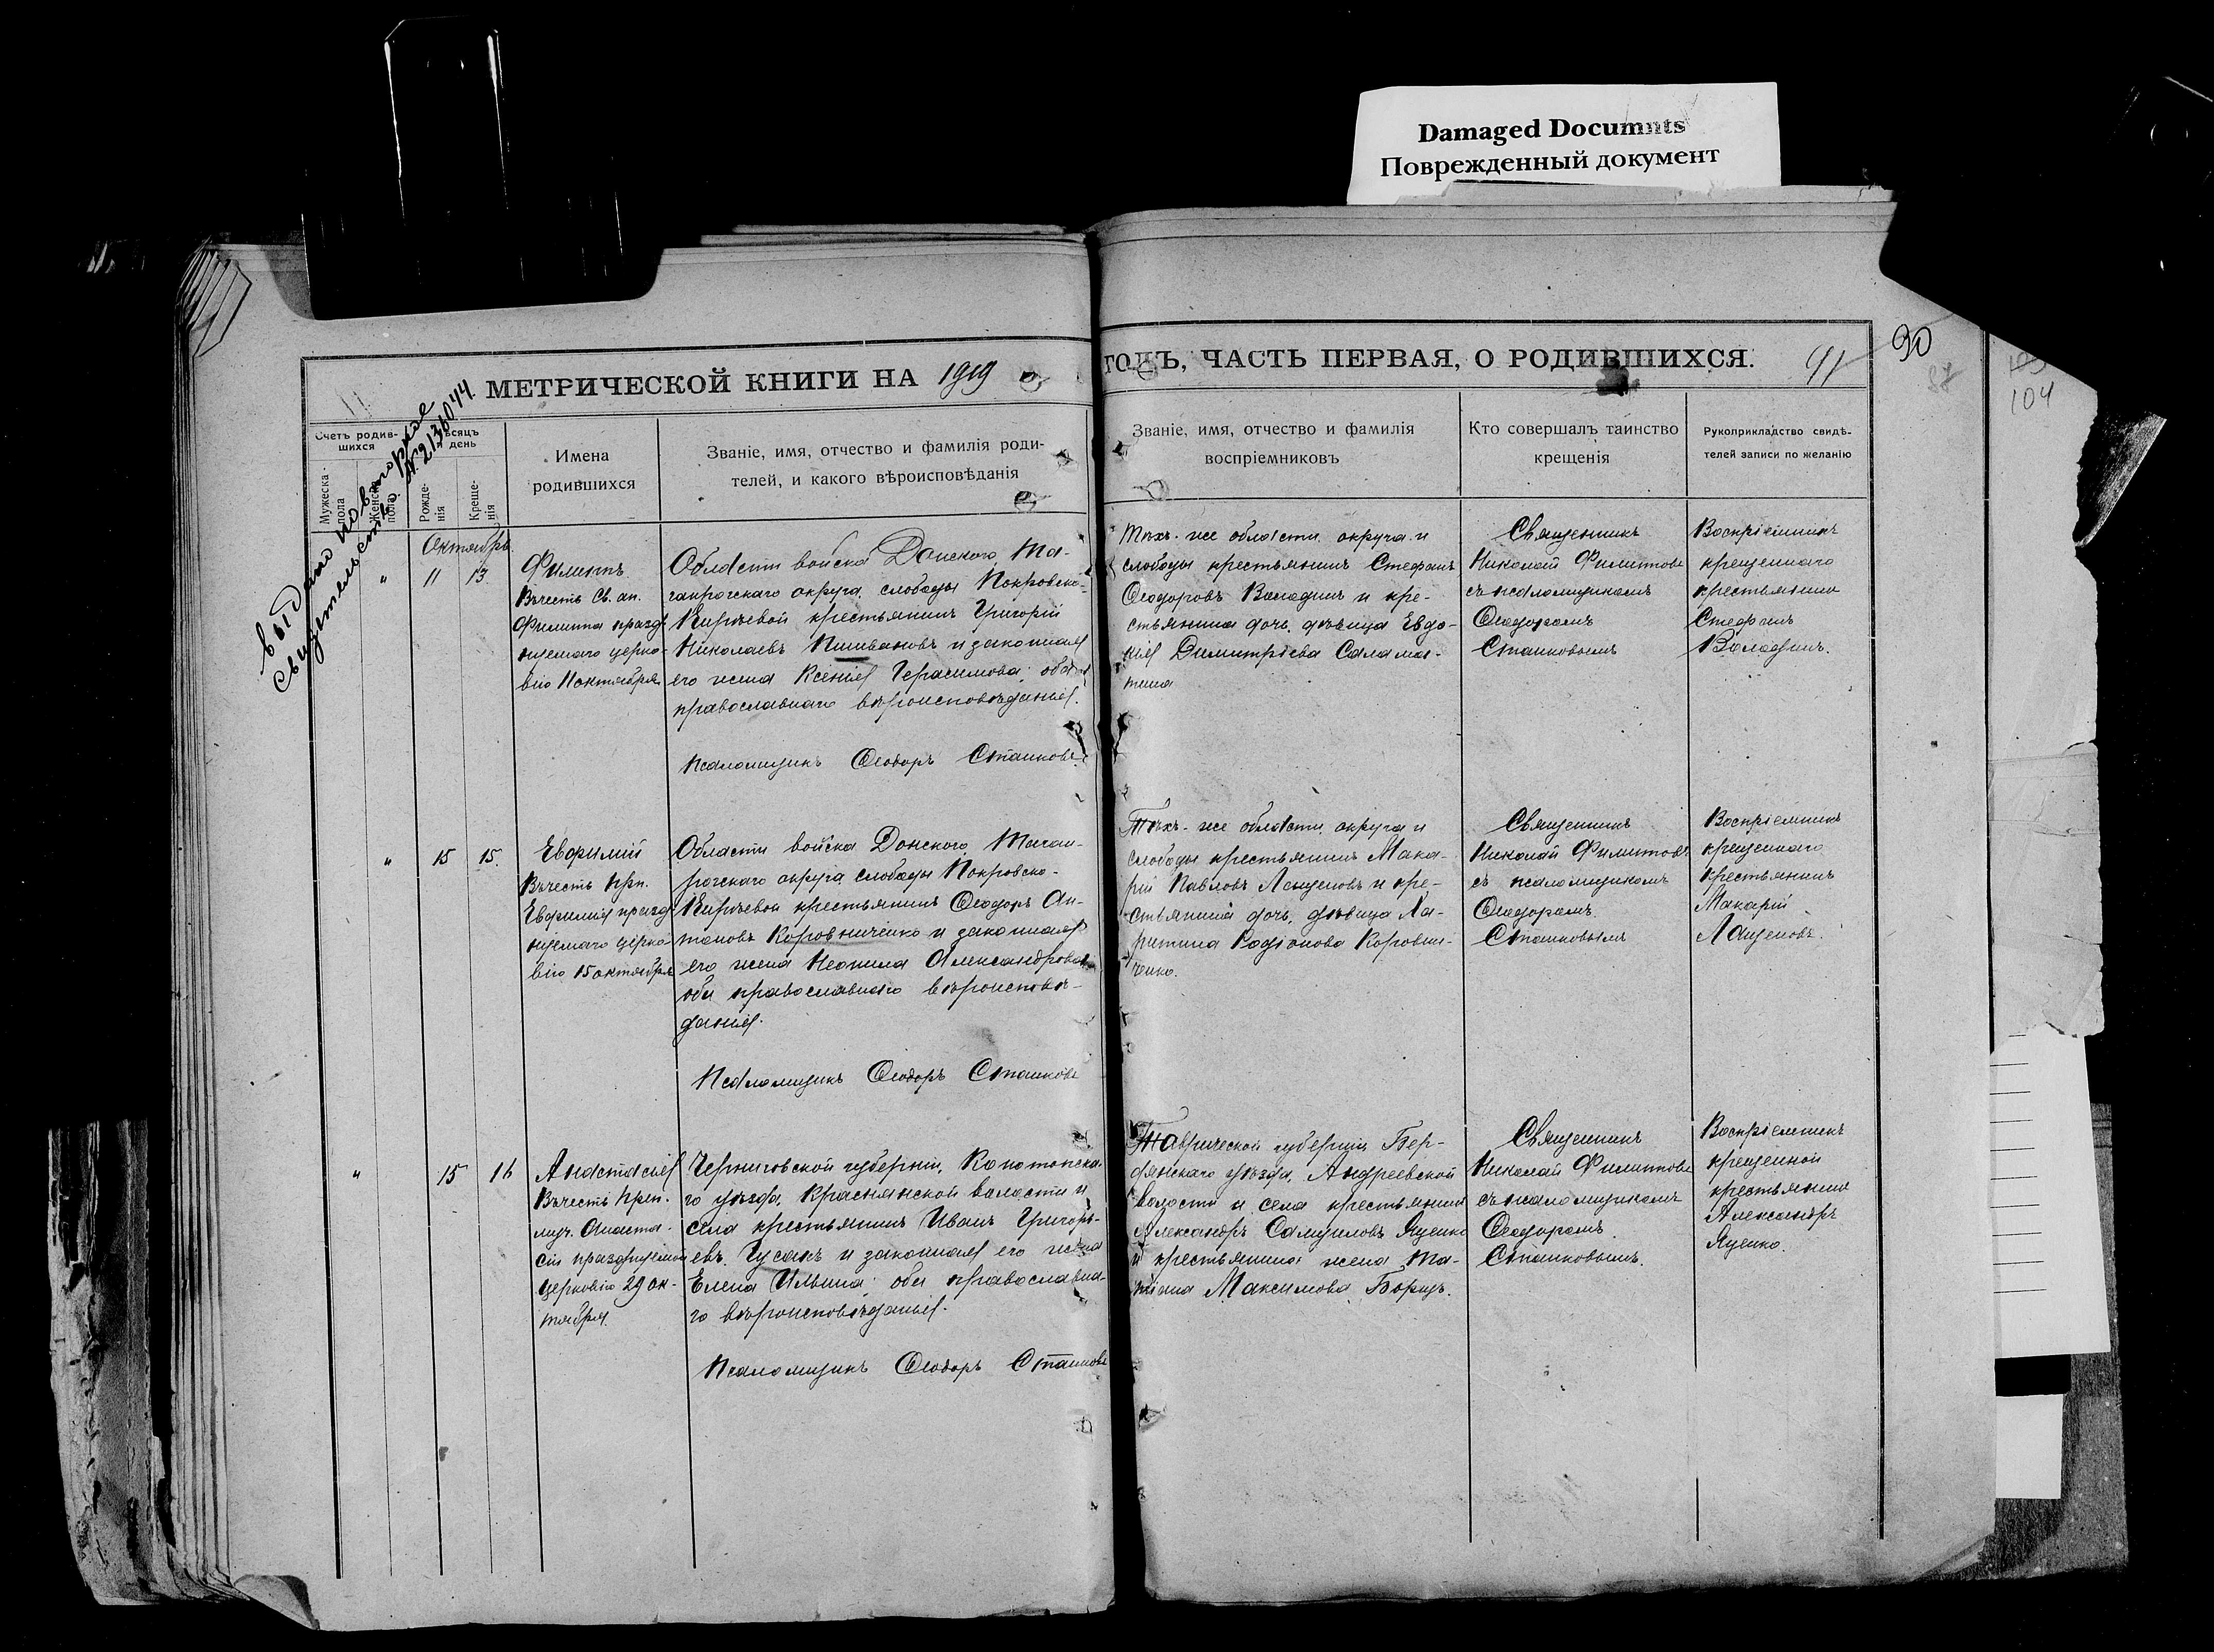 Damaged Documnts
Поврежденный документ
МЕТРИЧЕСКОЙ КНИГИ НА 1919
ГОДЪ, ЧАСТЬ ПЕРВАЯ, О РОДИВШИХСЯ.
91
90
88
104
11
выдано повторное
свидетельство
№ 2136044
Счетъ родив-
шихся
Мѣсяцъ
день
Мужеска
пола
Женска
пола
Рожде-
нія
Креще-
нія
Имена
родившихся
Званіе, имя, отчество и фамилія роди-
телей, и какого вѣроисповѣданія
Званіе, имя, отчество и фамилія
воспріемниковъ
Кто совершалъ таинство
крещенія
Рукоприкладство свидѣ-
телей записи по желанію
Октябрь.
" 11 13
Филиппъ
Въ честь Св. ап.
Филиппа празд-
нуемаго церко-
вію 11 октября
Области войска Донского, Та-
ганрогскаго округа, слободы Покровско-
Кирѣевой крестьянинъ Григорій
Николаевъ Пишвановъ и законная
его жена Ксенія Герасимова; оба
православнаго вѣроисповѣданія.
Псаломщикъ Ѳеодоръ Станковъ
Тѣхъ-же области, округа и
слободы крестьянинъ Стефанъ
Ѳеодоровъ Володинъ и кре-
стьянина дочь, дѣвица Евдо-
кія Димитріева Салама-
тина
Священникъ
Николай Филиповъ
съ псаломщикомъ
Ѳеодоромъ
Станковымъ
Воспріемникъ
крещеннаго
крестьянинъ
Стефанъ
Володинъ.
" 15 15.
Евфимій
Въ честь прп.
Евфимія празд-
нуемаго церко-
вію 15 октября
Области войска Донского, Таган-
рогскаго округа, слободы Покровско-
Кирѣевой крестьянинъ Ѳеодоръ Ан-
тоновъ Коровниченко и законная
его жена Неонила Александрова
оба православнаго вѣроисповѣ-
данія.
Псаломщикъ Ѳеодоръ Станковъ
Тѣхъ-же области, округа и
слободы крестьянинъ Мака-
рій Павловъ Лащеновъ и кре-
стьянина дочь, дѣвица Ха-
ритина Родіонова Коровни-
ченко.
Священникъ
Николай Филиповъ
съ псаломщикомъ
Ѳеодоромъ
Станковымъ
Воспріемникъ
крещеннаго
крестьянинъ
Макарій
Лащеновъ.
" 15 16
Анастасія
Въ честь прп.
муч. Анаста-
сіи празднуемой
церковію 29 ок-
тября.
Черниговской губерніи, Конотопска-
го уѣзда, Краснянской волости и
села крестьянинъ Иванъ Григорь-
евъ Гусакъ и законная его жена
Елена Ильина; оба православна-
го вѣроисповѣданія.
Псаломщикъ Ѳеодоръ Станковъ
Таврической губерніи Бер-
дянскаго уѣзда, Андреевской
волости и села крестьянинъ
Александръ Самуиловъ Яценко
и крестьянина жена Та-
тіана Максимова Борщъ.
Священникъ
Николай Филиповъ
съ псаломщикомъ
Ѳеодоромъ
Станковымъ.
Воспріемникъ
крещенной
крестьянинъ
Александръ
Яценко.